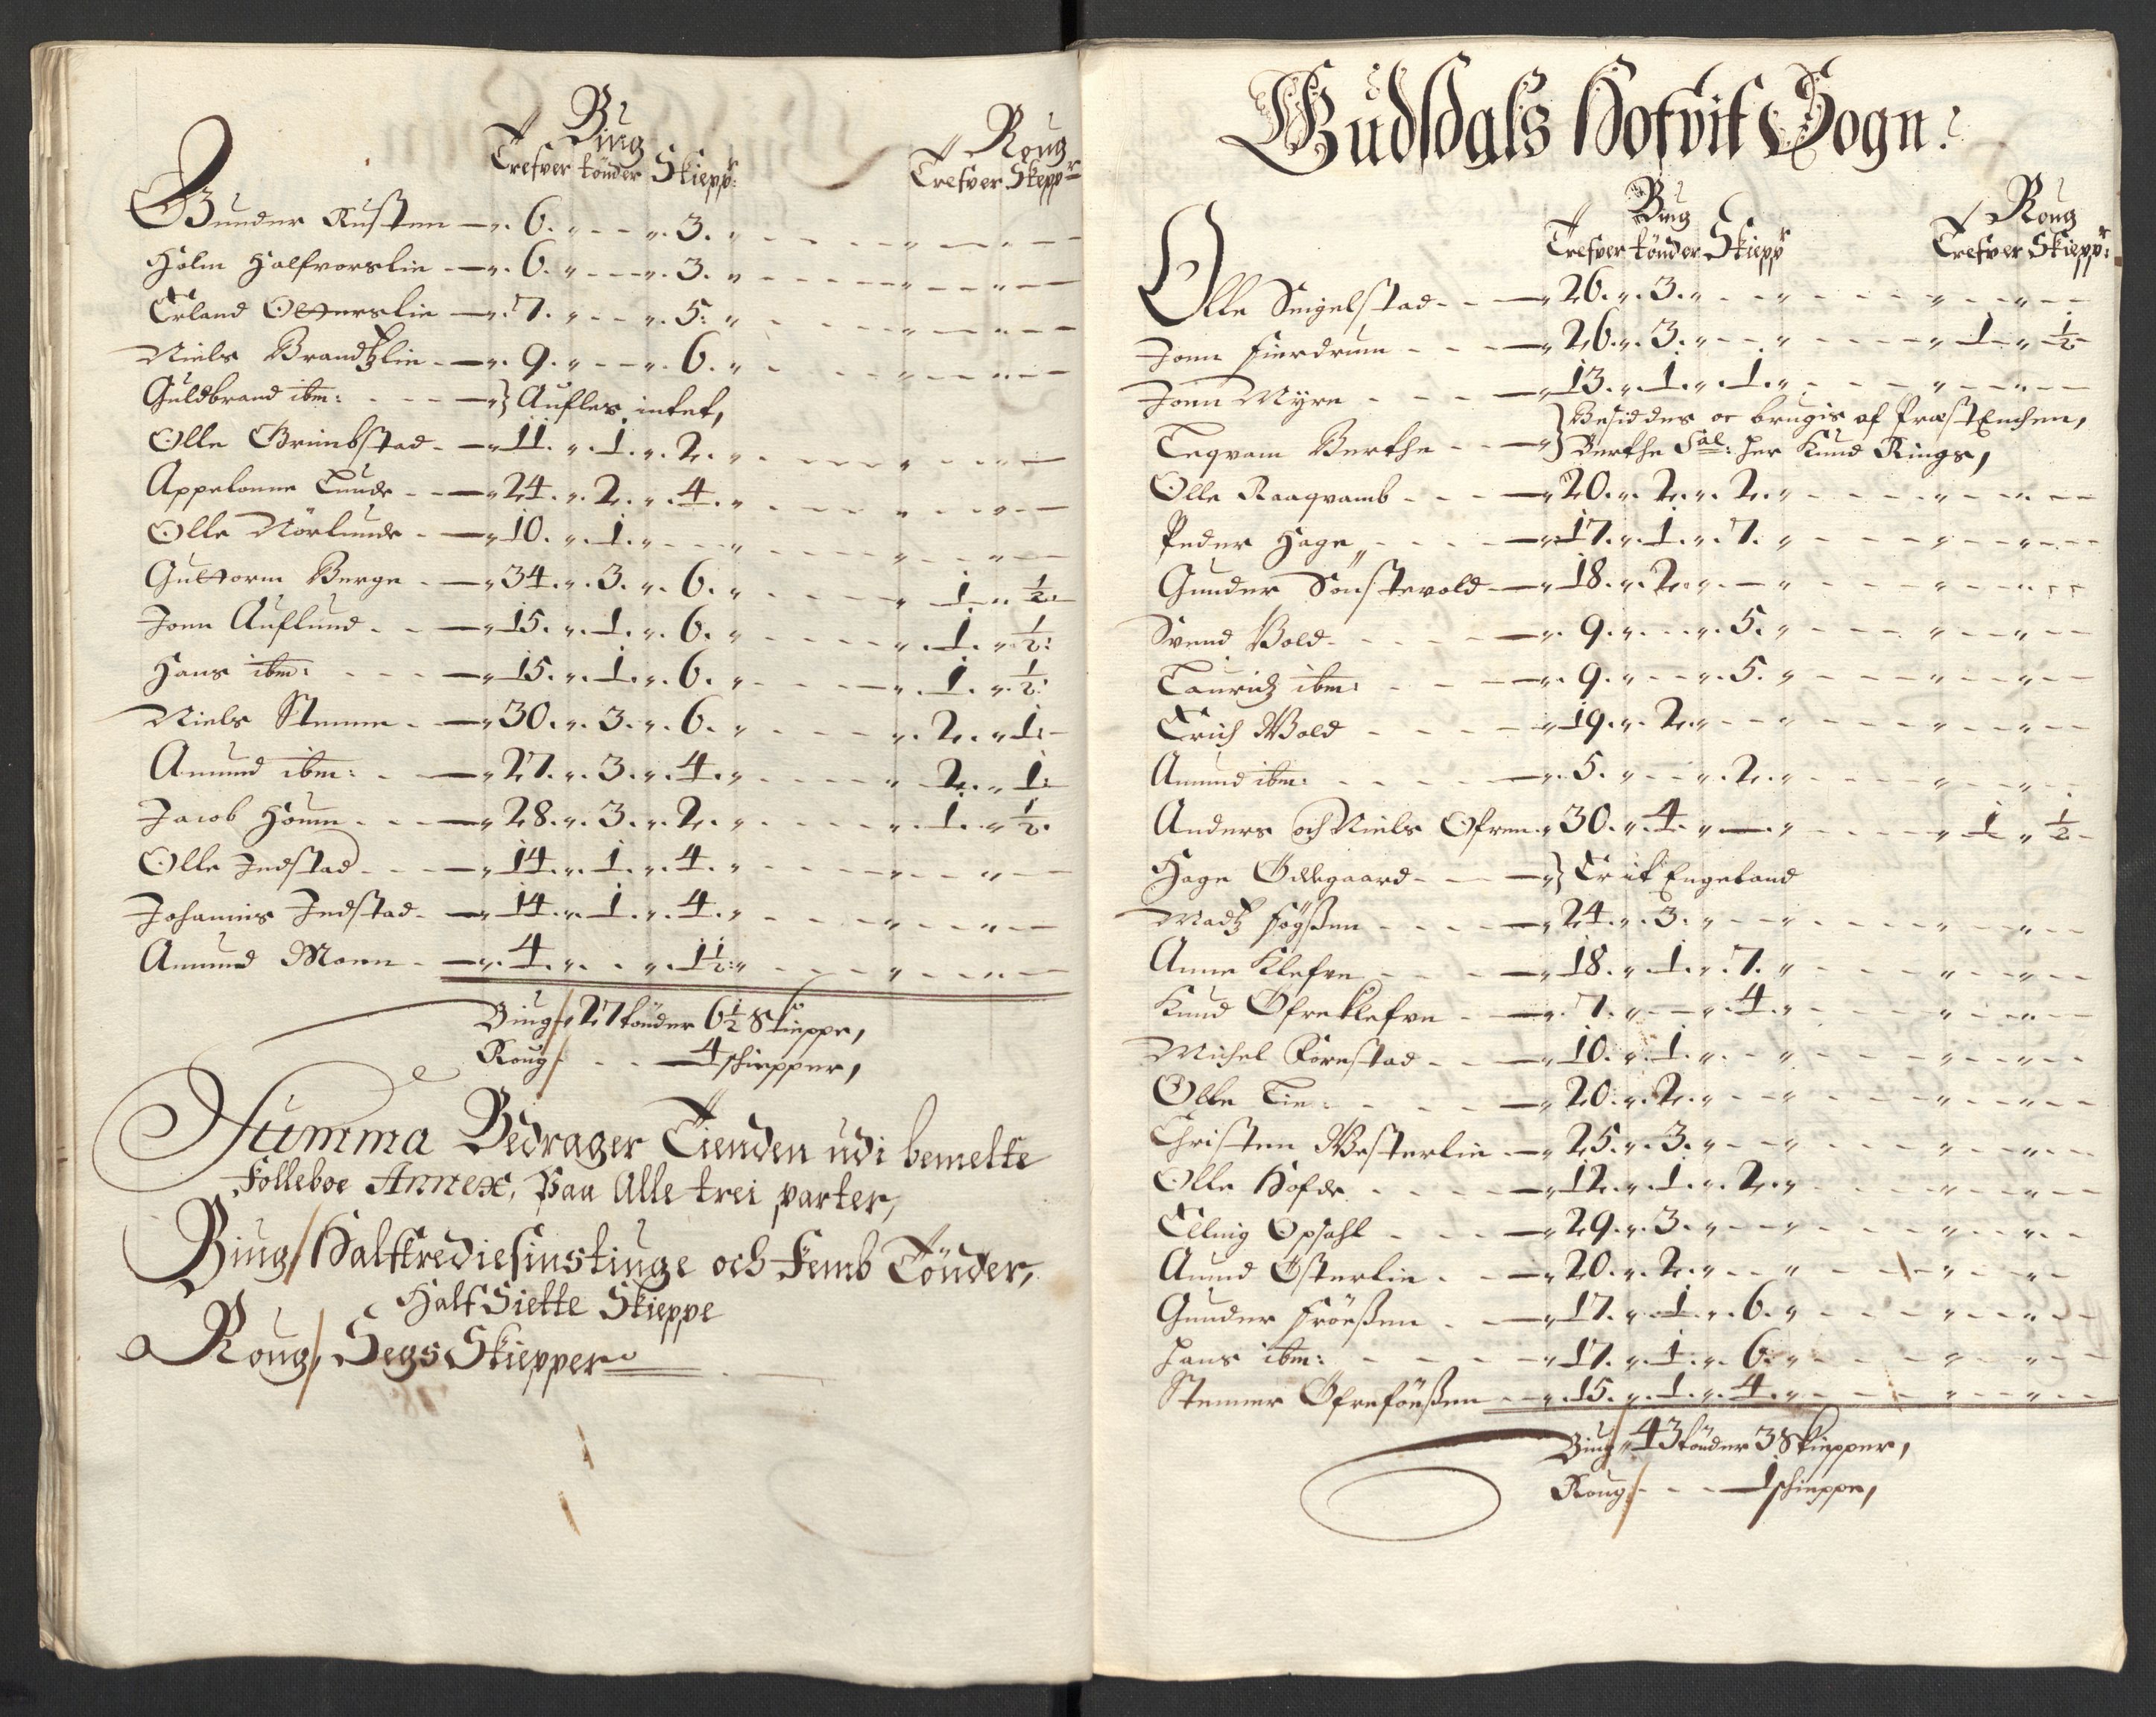 Biug
Roug
Trefver tönder Skiepp:
Trefver Skepp
Gunder Rusten 6. 3.
Holm Halfvorslie 6. 3.
Erland Otterslie 7. 5:
Niels Brandtzlie 9. 6.
Guldbrand ibm: Aufler intet,
Olle Grimbstad 11. 1. 2.
Appelonne Lunde 24. 2. 4.
Olle Nörlunde 10. 1.
Guttorm Berge 34. 3. 6. 1. ½:
Jonn Auflund 15. 1. 6. 1. ½:
Hans ibm: 15. 1. 6. 1. ½:
Niels Stenne 30. 3. 6. 2. 1:
Amund ibm: 27. 3. 4. 2. 1:
Jacob Houm 28. 3. 2. 1. ½.
Olle Jedstad 14. 1. 4.
Johannis Jedstad 14. 1. 4.
Amund Moen 4. 1½:
Biug 27 tönder 6½ Skieppe,
Roug 4 schiepper,
Summa Bedrager Tienden udi bemelte
Folleboe Annex, Paa Alle trei parter,
Biug Halftrediesinstiuge och Femb Tönder,
Half Siette Skieppe
Roug, Segs Skiepper
Gudsdals Hofvit Sogn:
Biug
Roug
Trefver tönder Skiepp
Trefver Skiepp:
Olle Seigelstad 26. 3.
Jonn Fierdrum 26. 3. 1 ½
Jonn Myre 13. 1. 1.
Teqvam Berthe Besiddes oc brugis af PræstEnchen,
Berthe Sal: Her Knud Rings,
Olle Raaqvamb 20. 2. 2.
Peder Hage 17. 1. 7.
Gunder Sönstevold 18. 2.
Svend Vold 9. 5.
Lauridz ibm: 9. 5.
Erich Wold 19. 2.
Amund ibm: 5. 2.
Anders och Niels Ofren 30. 4. 1 ½
Hage Ödegaard Er it Engeland
Madtz Föyßen 24. 3.
Anne Klefve 18. 1. 7.
Knud Öfreklefve 7. 4.
Michel Forestad 10. 1.
Olle Lie 20. 2.
Christen Westerlie 25. 3.
Olle Hofde 12. 1. 2.
Elling Opsahl 29. 3.
Amund Österlie 20. 2.
Gunder Fröeßen 17. 1. 6.
Hans ibm: 17. 1. 6.
Stenner Öfreföeßen 15. 1. 4.
Biug 43 tönder 3 Skiepper,
Roug 1 schieppe,